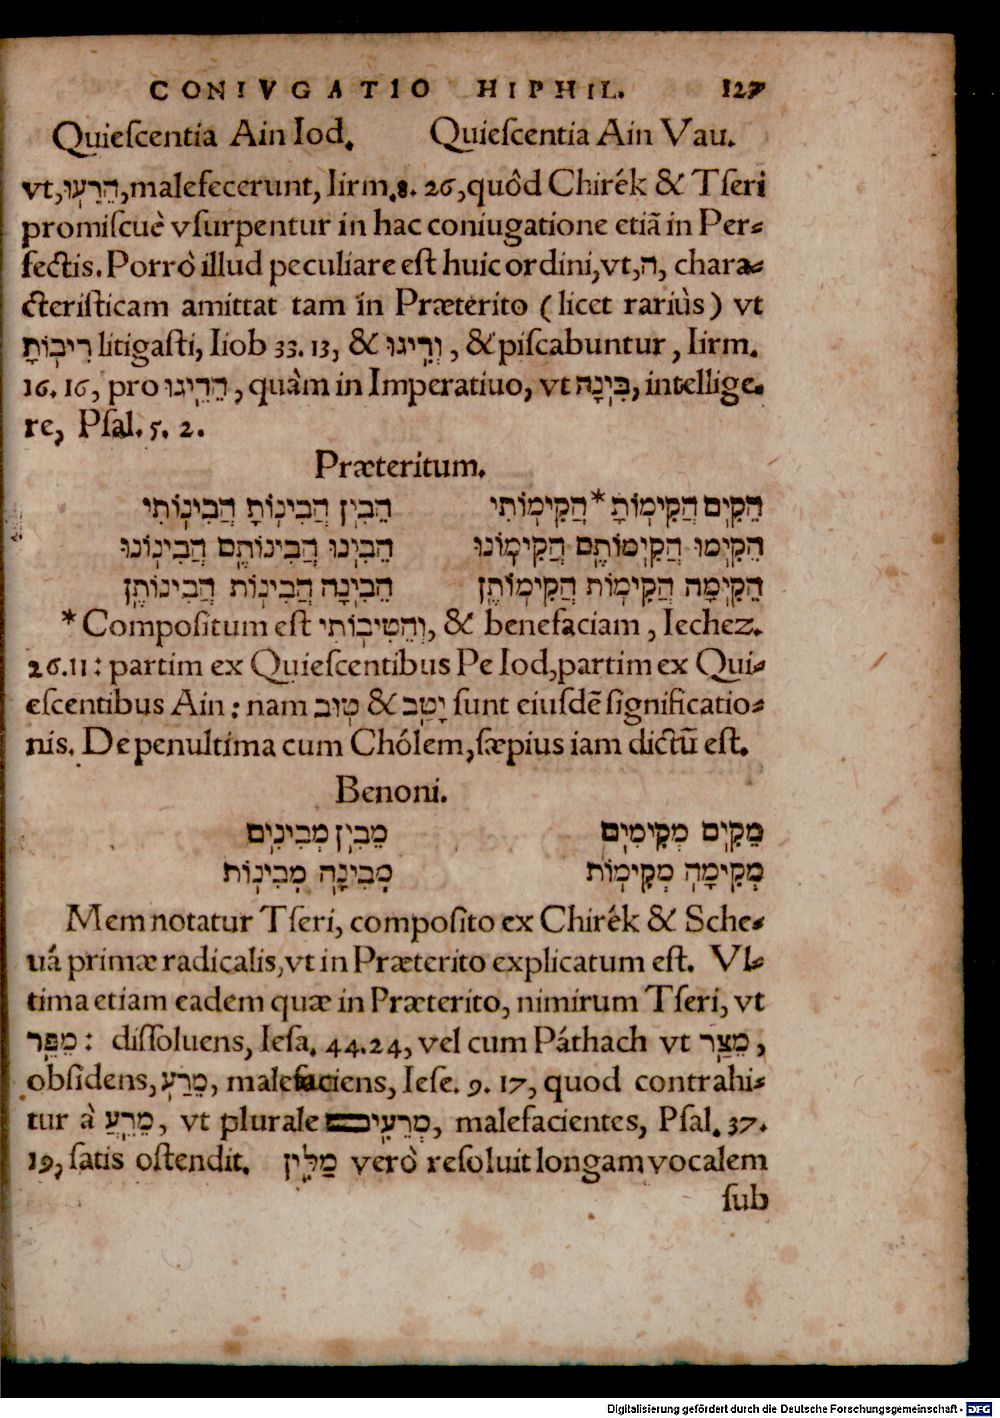 CONIVGATIO HIPHIL. 127
Quieſcentia Ain Iod. Quieſcentia Ain Vau.
vt, הֵרֵעוּ, malefecerunt, Iirm. 8. 26, quòd Chirék & Tſeri
promiſcuè vſurpentur in hac coniugatione etiã in Per-
fectis. Porrò illud peculiare eſt huic ordini, vt, ה, chara-
cteriſticam amittat tam in Præterito (licet rariùs) vt
רִיבוֹתָ litigaſti, Iiob 33. 13, & וְדִיגוּ, & piſcabuntur, Iirm.
16. 16, pro הֵדִיגוּ, quàm in Imperatiuo, vt בִּינָה, intellige-
re, Pſal. 5. 2.
Præteritum.
הֵקִים הֲקִימוֹתָ * הֲקִימוֹתִי הֵבִין הֲבִינוֹתָ הֲבִינוֹתִי
הֵקִימוּ הֲקִימוֹתֶם הֲקִימוֹנוּ הֵבִינוּ הֲבִינוֹתֶם הֲבִינוֹנוּ
הֵקִימָה הֲקִימוֹת הֲקִימוֹתֶן הֵבִינָה הֲבִינוֹת הֲבִינוֹתֶן
* Compoſitum eſt וְהֵטִיבוֹתִי, & benefaciam, Iechez.
26. 11: partim ex Quieſcentibus Pe Iod, partim ex Qui-
eſcentibus Ain: nam טוֹב & יָטַב ſunt eiuſdẽ ſignificatio-
nis. De penultima cum Chólem, ſæpius iam dictũ eſt.
Benoni.
מֵקִים מְקִימִים מֵבִין מְבִינִים
מְקִימָה מְקִימוֹת מְבִינָה מְבִינוֹת
Mem notatur Tſeri, compoſito ex Chirék & Sche-
uá primæ radicalis, vt in Præterito explicatum eſt. Vl-
tima etiam eadem quæ in Præterito, nimirum Tſeri, vt
מֵפֵר: diſſoluens, Ieſa. 44. 24, vel cum Páthach vt מֵצַר,
obſidens, מֵרַע, malefaciens, Ieſe. 9. 17, quod contrahi-
tur à מֵרֵעַ, vt plurale מְרֵעִים, malefacientes, Pſal. 37.
19, ſatis oſtendit. מַלִּין verò reſoluit longam vocalem
ſub
Digitalisierung gefördert durch die Deutsche Forschungsgemeinschaft - DFG